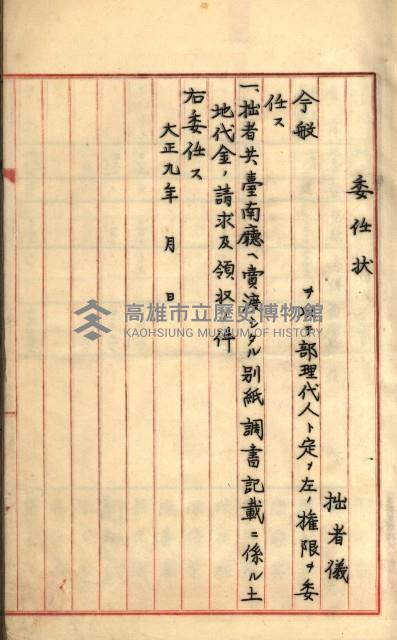 委任状
拙者儀
今般　ヲ以テ部理代人ト定メ左ノ権限ヲ委
任ス
一、拙者共臺南廳ヘ賣渡シタル別紙調書記載ニ係ル土
地代金ノ請求及領収ノ件
右委任ス
大正九年　月　日
高雄市立歷史博物館
KAOHSIUNG MUSEUM OF HISTORY